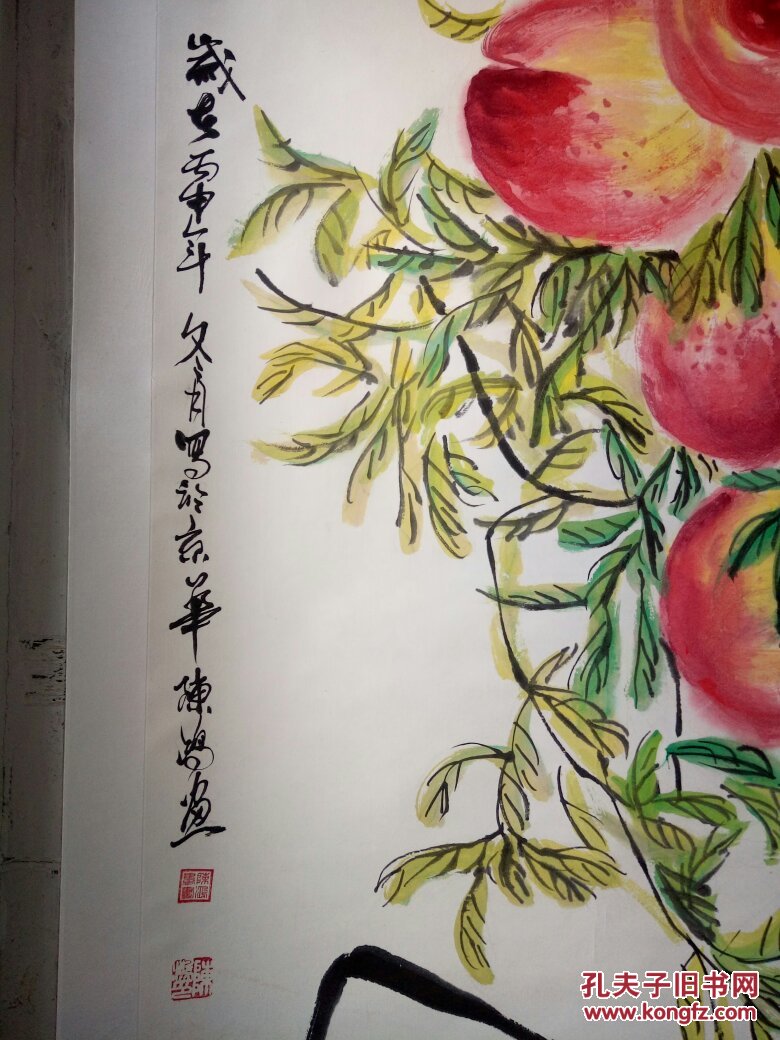 歲在丙申年冬月写於京華陳鸿画
孔夫子旧书网
www.kongfz.com